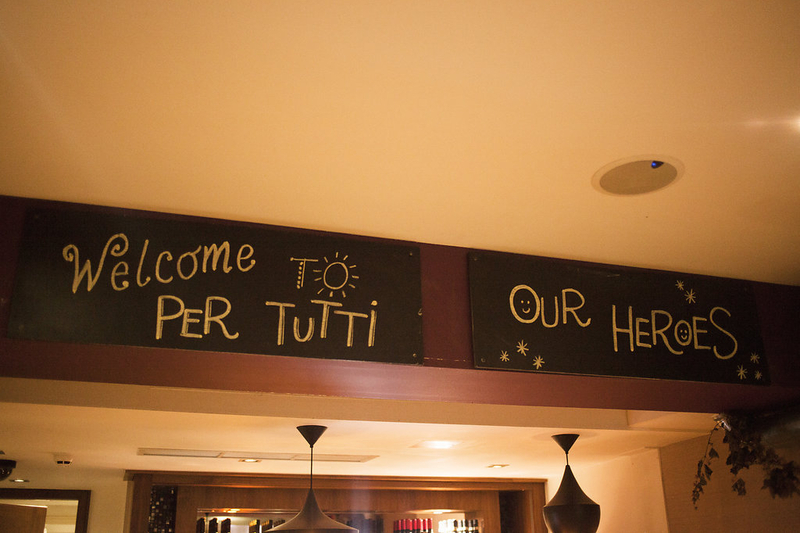 Welcome TO
PER TUTTi
OUR HEROES